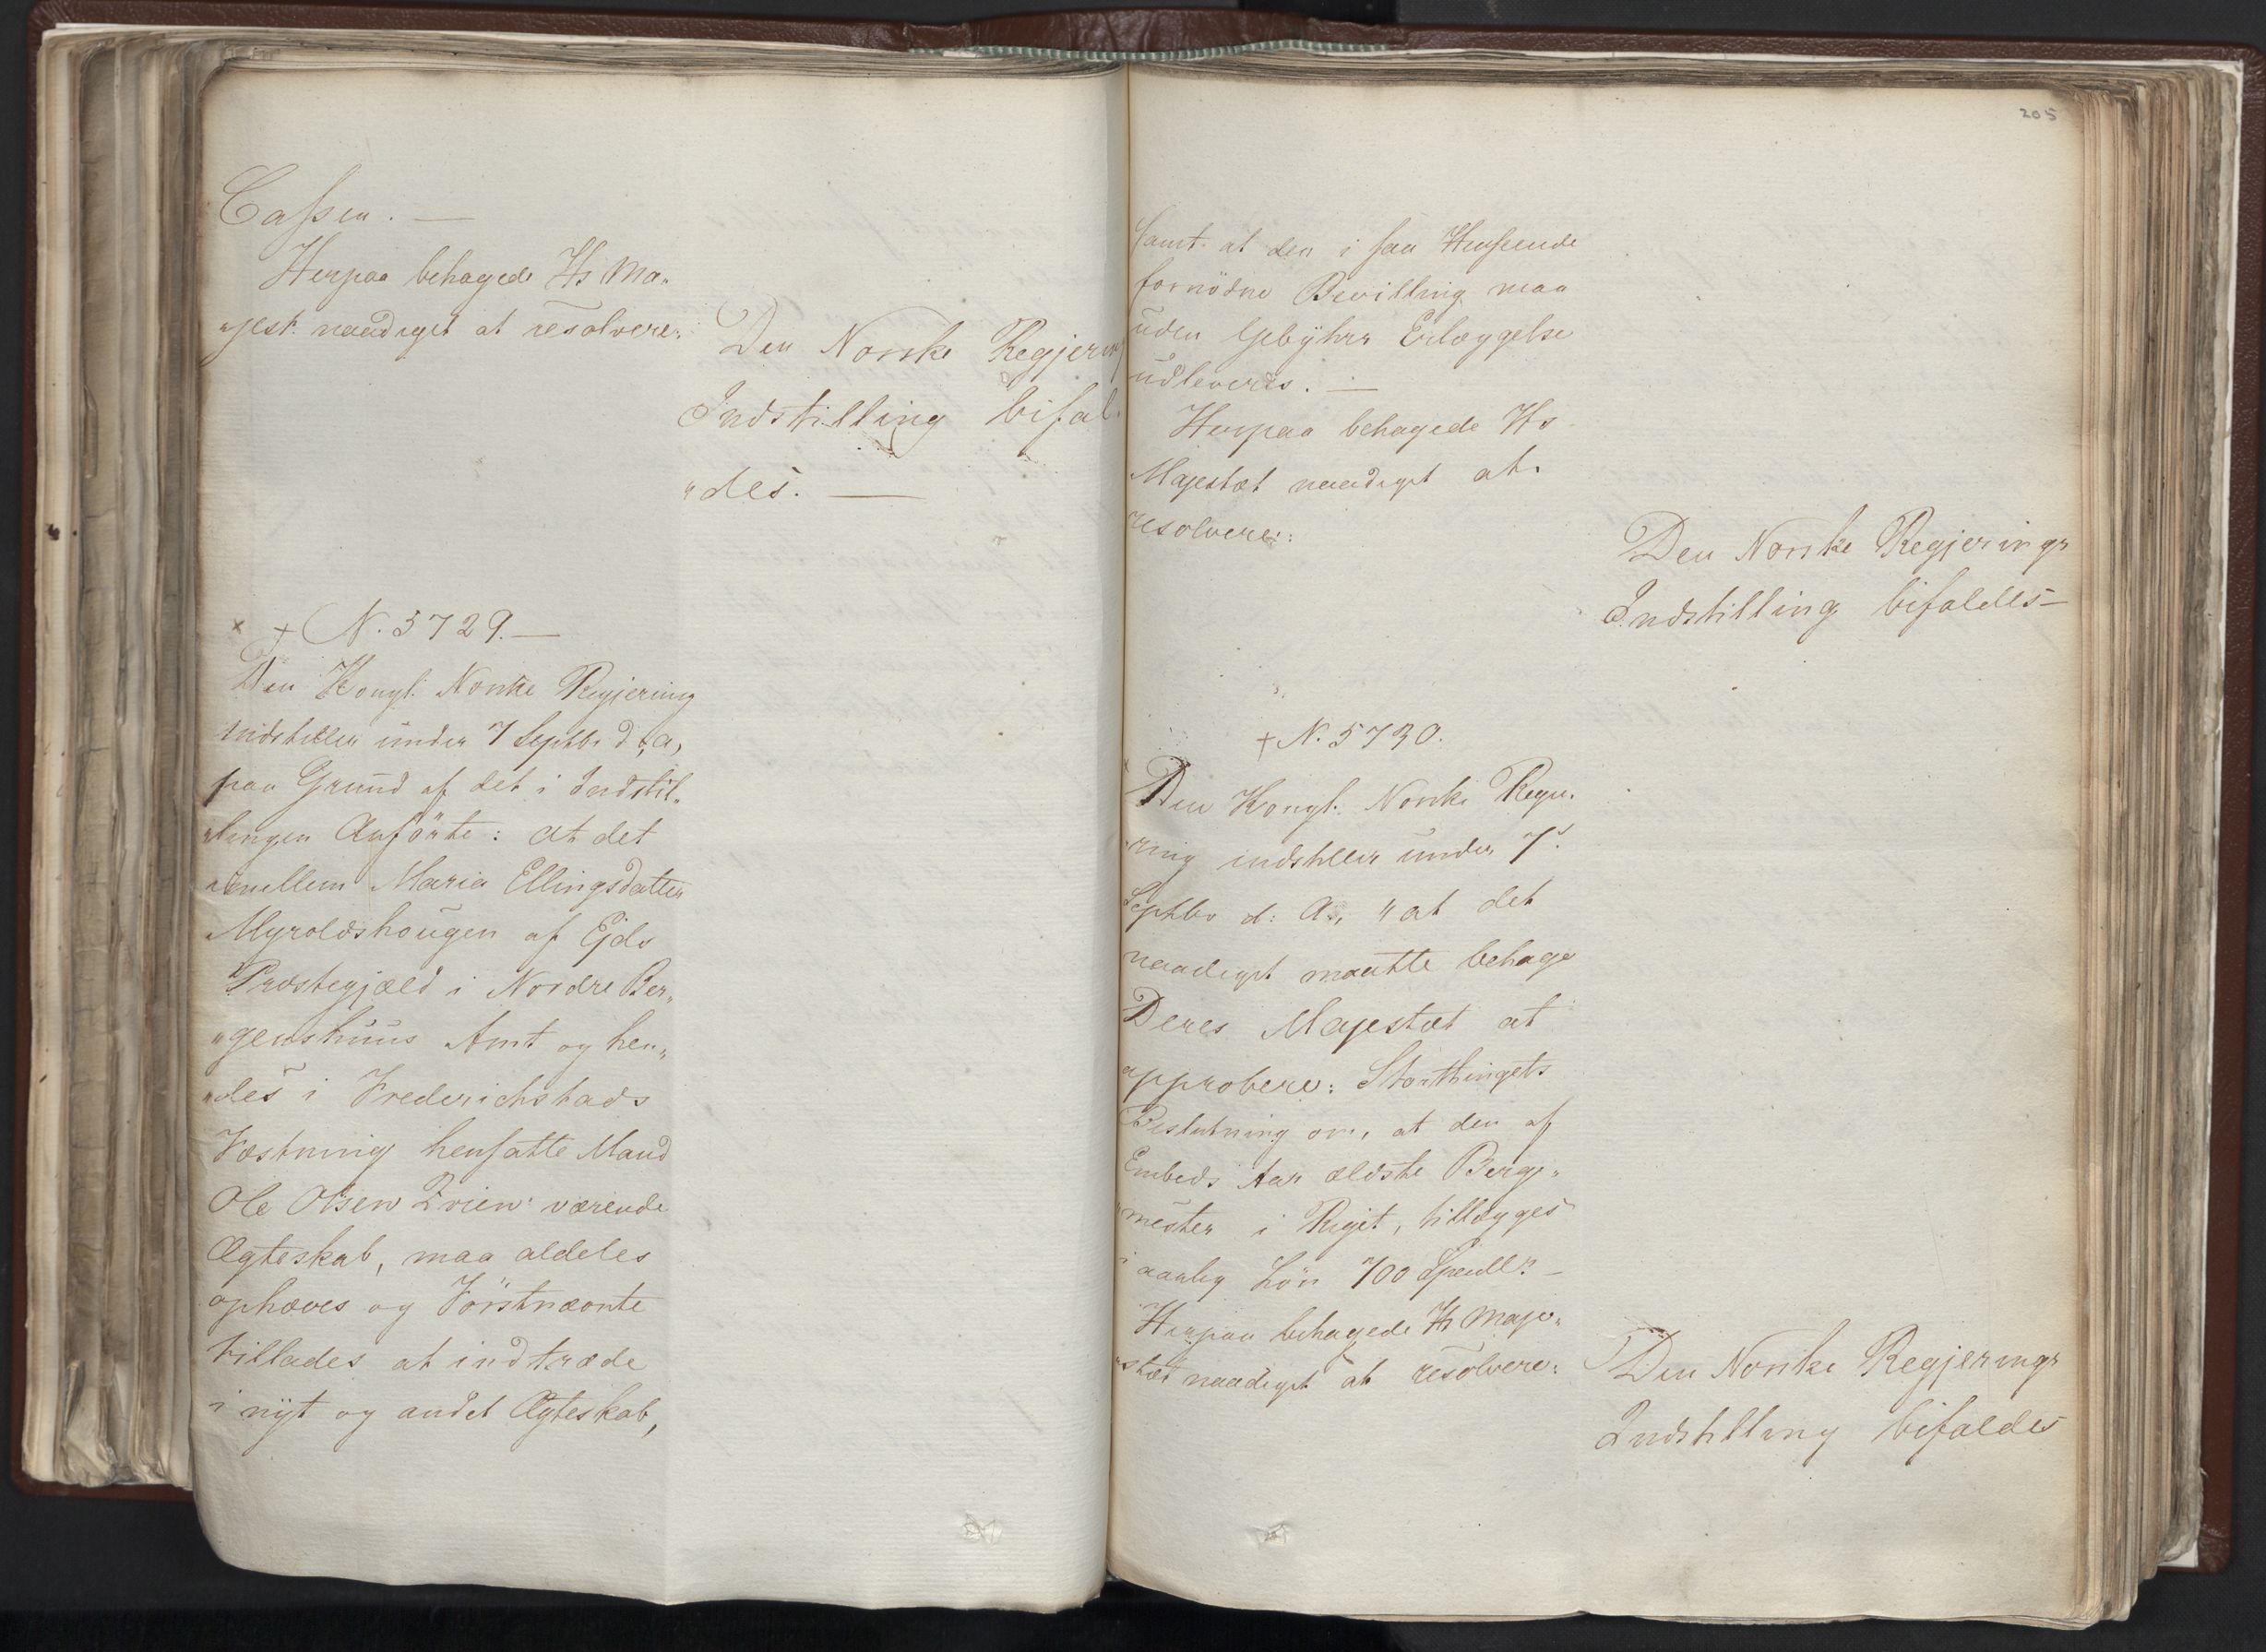 Cassen. —
Herpaa behagede Hs Ma„
„jest. naadigst at resolvere:
Den Norske Regjerings
Indstilling bifal„
„des. —
× + N. 5729. —
Den Kongl: Norske Regjering
indstiller under 7 Septbr d. a,
paa Grund af det i Indstil„
„lingen Anförte: at det
imellem Maria Ellingsdatter
Myroldshougen af Ejds
Præstegjæld i Nordre Ber„
„genshuus Amt og hen„
„des i Frederichstads
Fæstning hensatte Mand
Ole Olsen værende
Ægteskab, maa aldeles
ophæves og Förstnævnte
tillades at indtræde
i nyt og andet Ægteskab,
205
samt at den i saa Henseende
fornödne Bevilling maa
uden Gebyhrs Erlæggelse
udleveres. —
Herpaa behagede Hs
Majestæt naadigst at
resolvere:
Den Norske Regjerings
Indstilling bifaldes —
+ N. 5730.
Den Kongl: Norske Regje„
„ring indstiller under 7.
Septbr d: A., „at det
naadigst maatte behage
Deres Majestæt at
approbere: Storthingets
Beslutning om, at den af
Embeds Aar ældste Berg„
„mester i Riget, tillægges
i aarlig Lön 700 Specdlr. —
Herpaa behagede Hs Maje„
„stæt naadigst at resolvere:
Den Norske Regjerings
Indstilling bifaldes